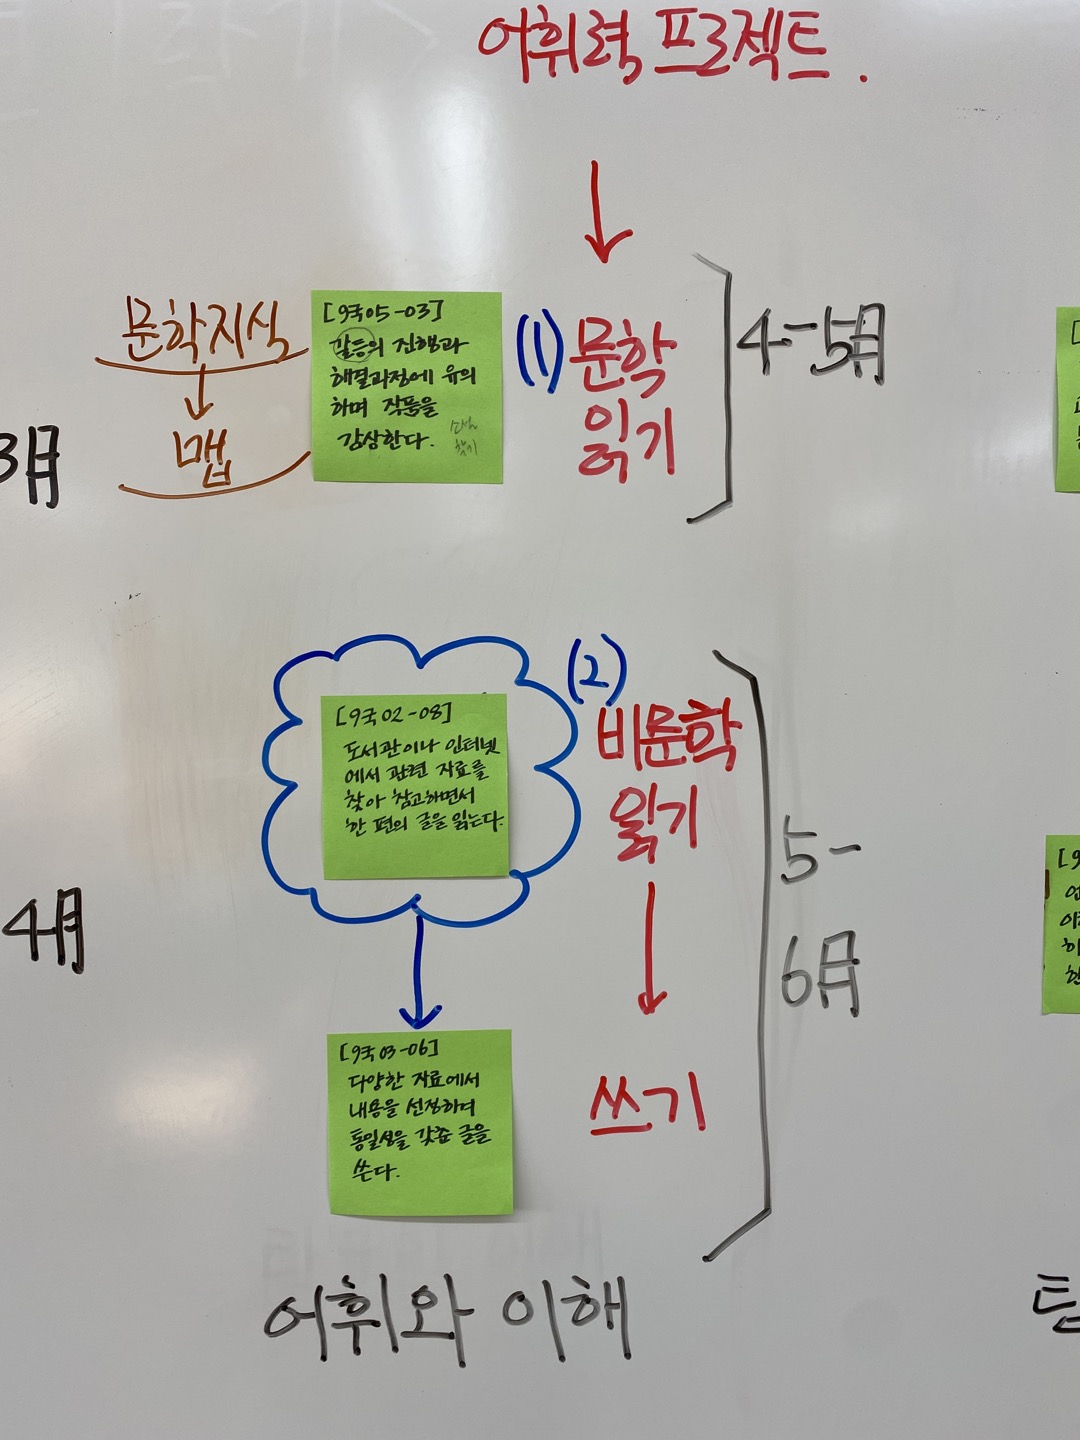 어휘력 프로젝트.
문학지식
맵
3月
[9국05-03]
갈등의 진행과
해결과정에 유의
하며 작품을
감상한다.
(1) 문학
읽기
4-5月
(2)
비문학
읽기
[9국02-08]
도서관이나 인터넷
에서 관련 자료를
찾아 참고하면서
한 편의 글을 읽는다.
5-
6月
4月
[9국03-06]
다양한 자료에서
내용을 선정하여
통일성을 갖춘 글을
쓴다.
쓰기
어휘와 이해